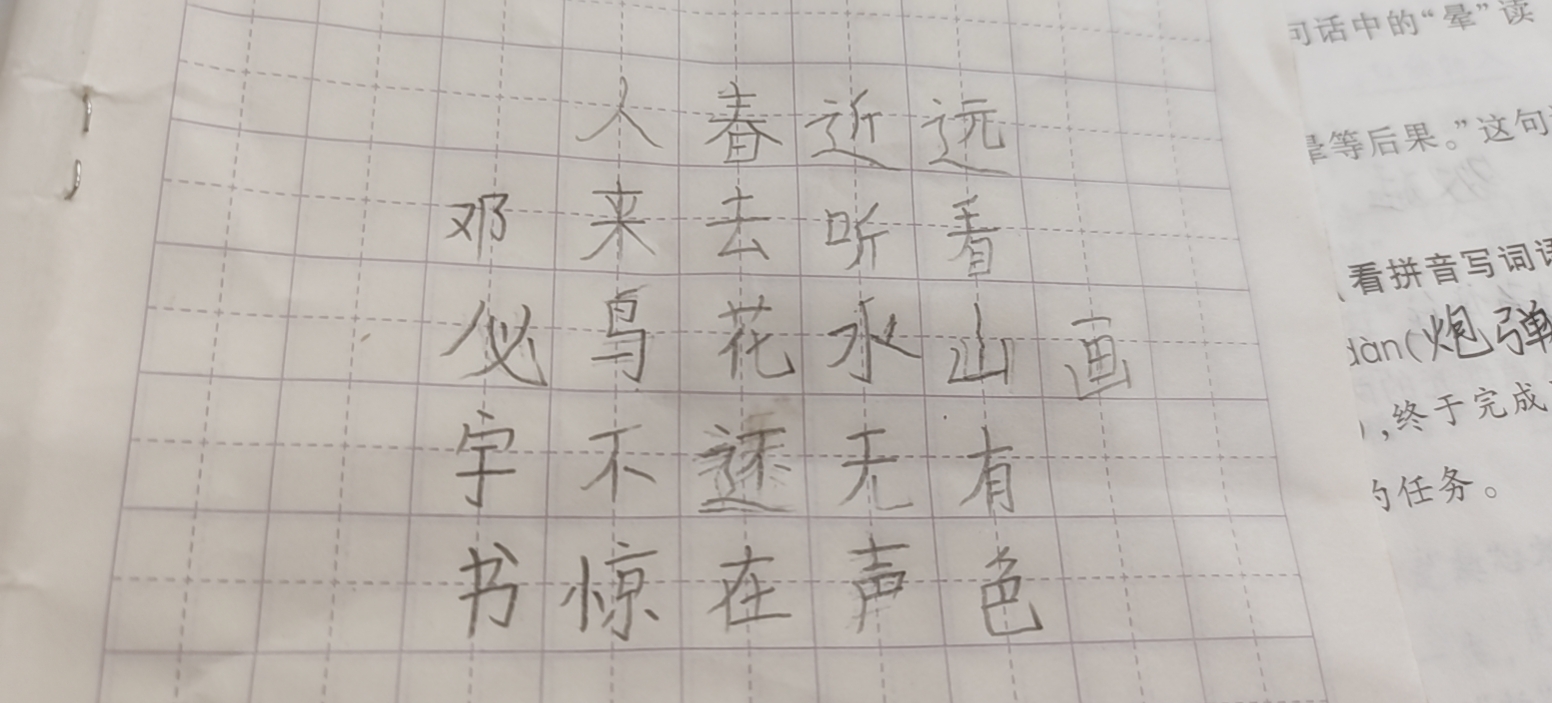 画
远看山有色
近听水无声
春去花还在
人来鸟不惊
邓佖宇书
句话中的“晕”读
晕等后果。”这句
看拼音写词语
dàn(炮弹
),终于完成
的任务。